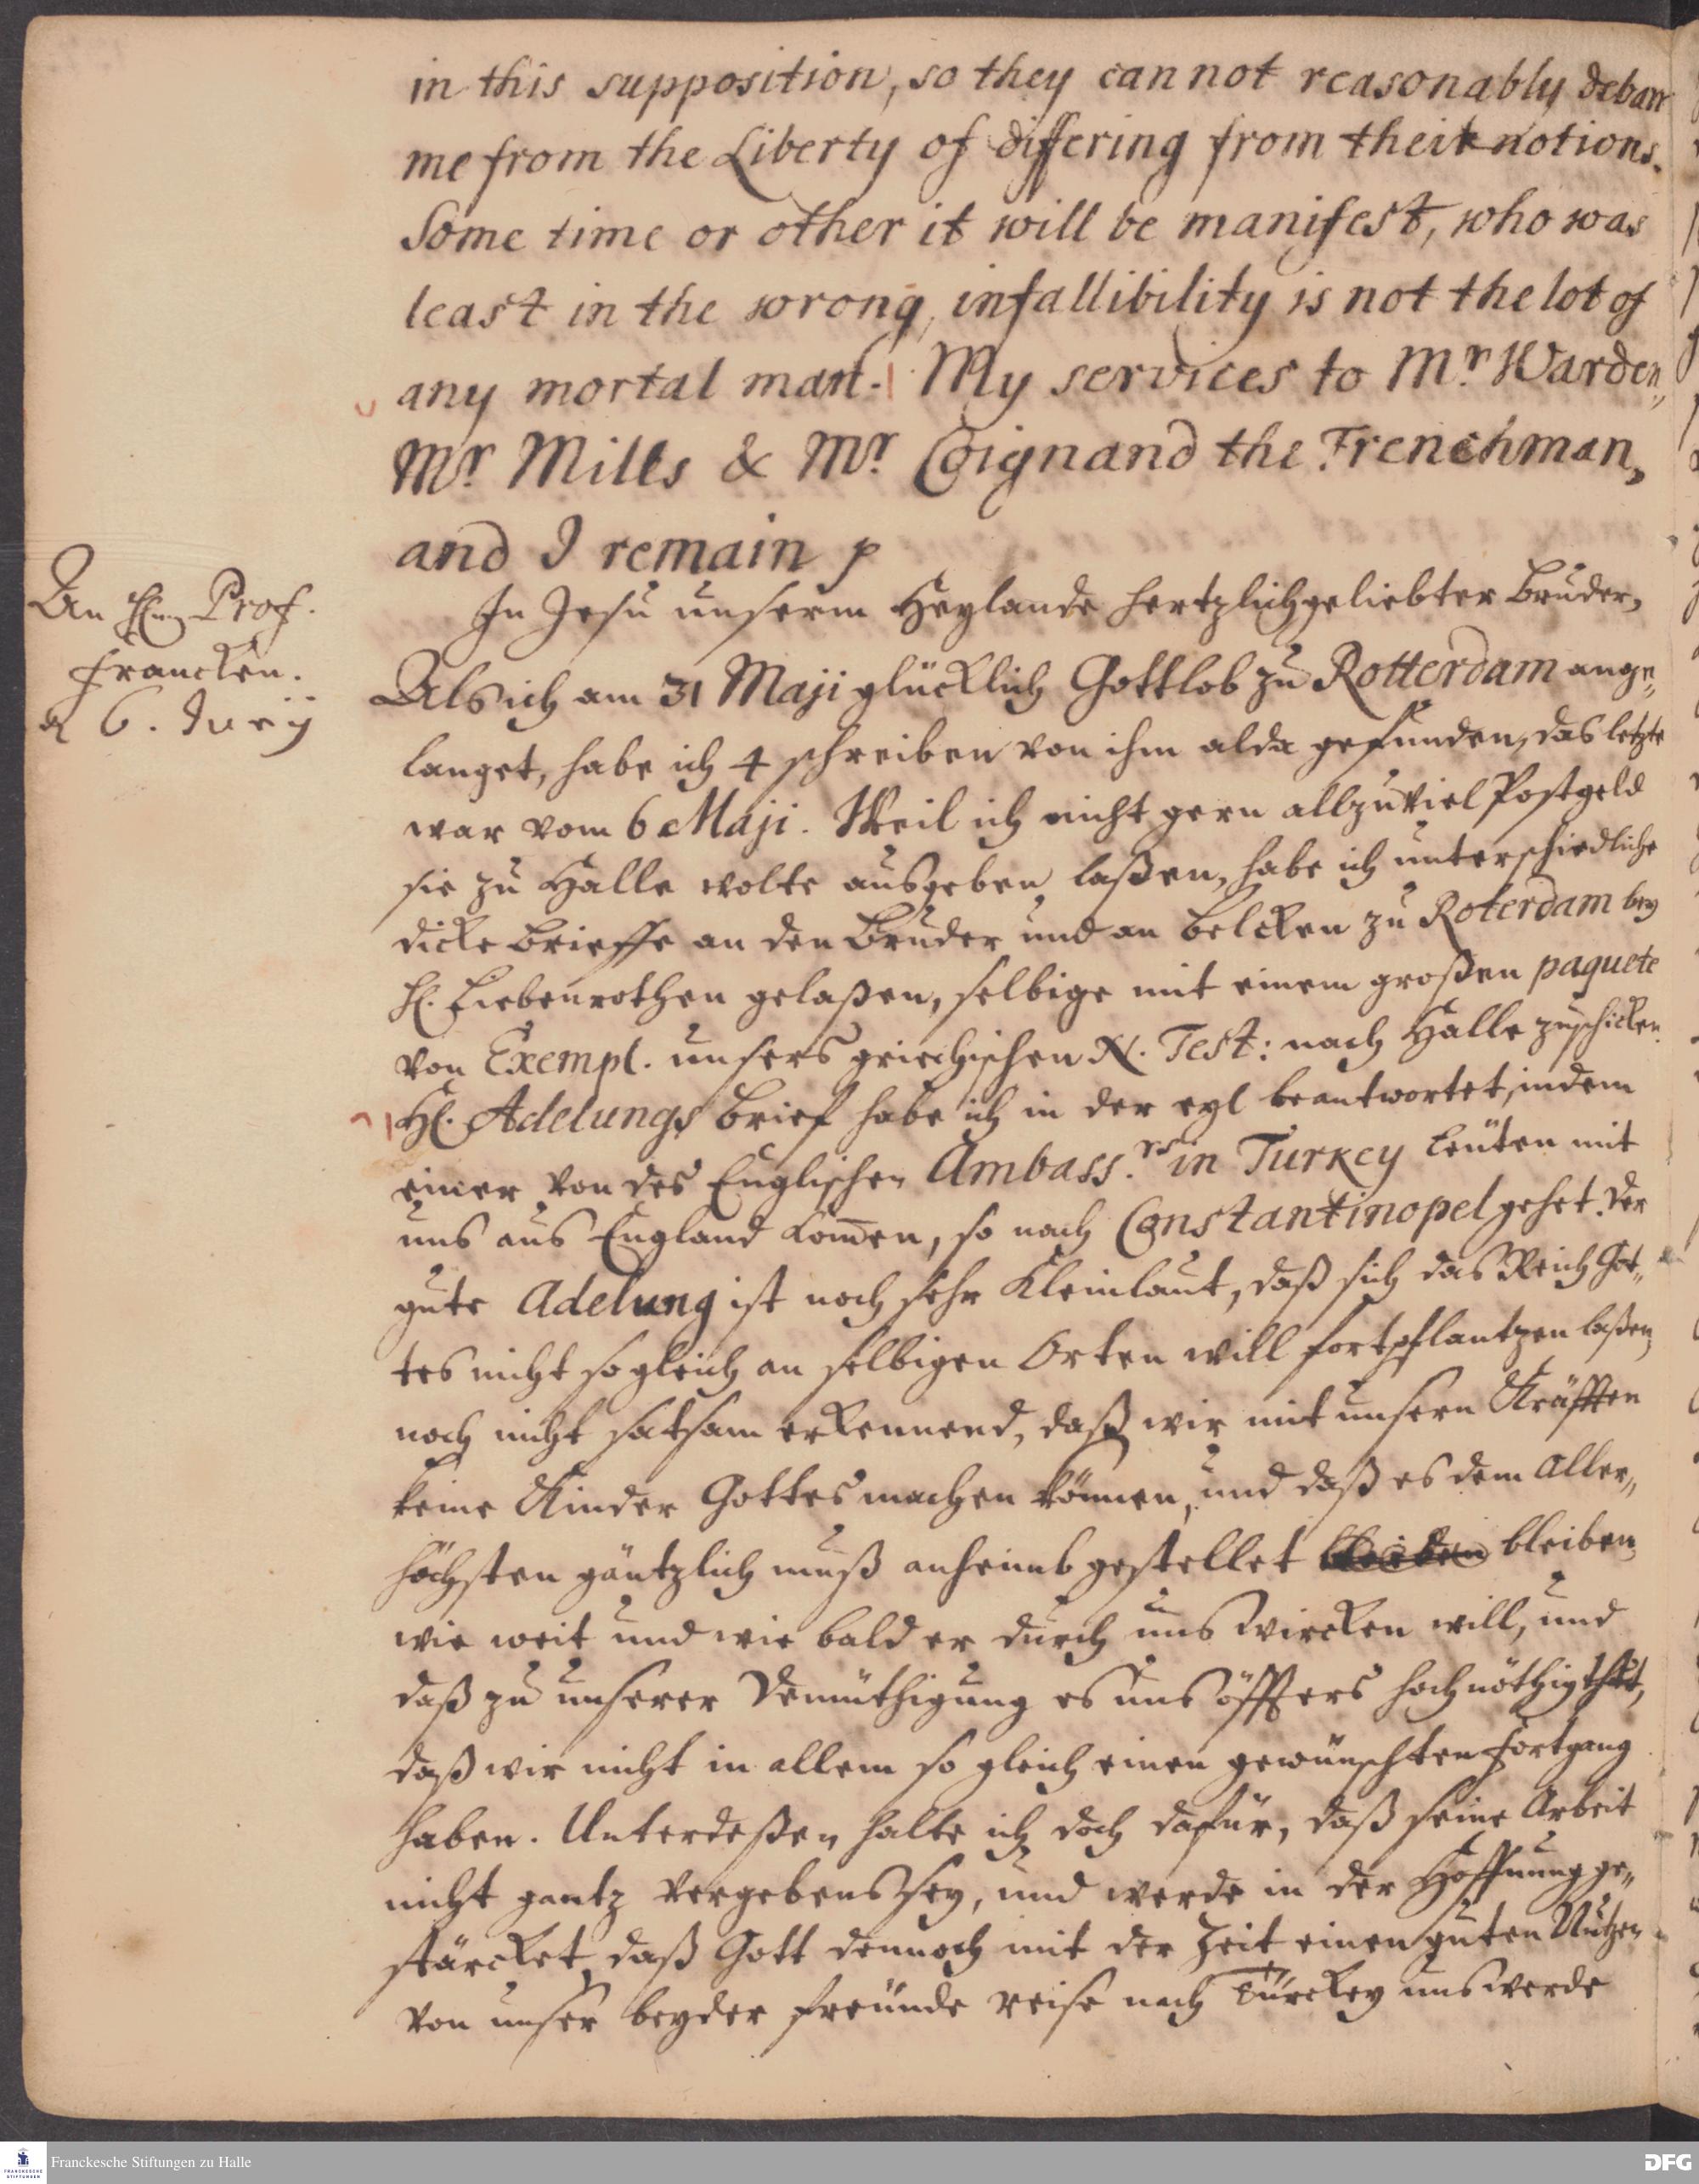 in this supposition, so they can not reasonably debarr
me from the Liberty of differing from their notions.
Some time or other it will be manifest, who was
least in the wrong, infallibility is not the lot of
any mortal man. My services to Mr. Warden,
Mr. Mills & Mr. Coignand the Frenchman,
and I remain p
An Hn. Prof.
Francken.
d 6. Junij
In Jesu unserm Heylande hertzlichgeliebter Bruder,
Als ich am 31 Maji glücklich Gottlob zu Rotterdam ange„
langet, habe ich 4 schreiben von ihm alda gefunden, das letzte
war vom 6 Maji. Weil ich nicht gern allzuviel Postgeld
sie zu Halle wolte ausgeben laßen, habe ich unterschiedliche
dicke brieffe an den Bruder und an belcken zu Roterdam bey
H. Liebenrothen gelaßen, selbige mit einem großen paquete
von Exempl. unsers griechischen N. Test: nach Halle zuschicken.
H. Adelungs brief habe ich in der eyl beantwortet, indem
einer von des Englischen Ambass.rs in Turkey leüten mit
uns aus England kom̅en, so nach Constantinopel gehet. Der
gute Adelung ist noch sehr kleinlaut, daß sich das Reich Got„
tes nicht sogleich an selbigen Orten will fortpflantzen laßen,
noch nicht satsam erkennend, daß wir mit unsern Kräfften
keine Kinder Gottes machen können, und daß es dem Aller„
höchsten gäntzlich muß anheimb gestellet bleiben
wie weit und wie bald er durch uns wircken will, und
daß zu unserer Demüthigung es uns öffters hochnöthig thut,
daß wir nicht in allem so gleich einen gewünschten Fortgang
haben. Unterdeßen halte ich doch dafür, daß seine Arbeit
nicht gantz vergebens sey, und werde in der Hoffnung ge„
stärcket, daß Gott dennoch mit der Zeit einen guten Nutzen
von unser beyder freünde reise nach Türckey uns werde
Franckesche Stiftungen zu Halle
DFG